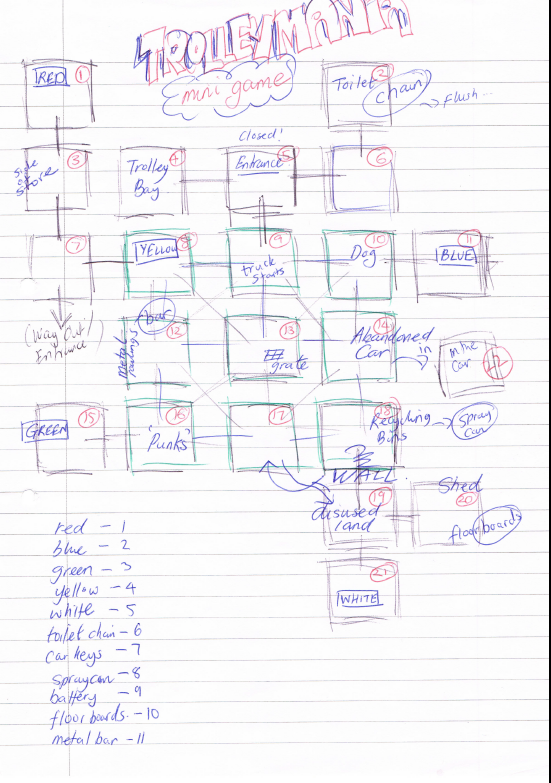 TROLLEYMANIA
mini game
RED 1
Toilet 2
chain
→ Flush...
Closed!
side of store 3
Trolley 4
Bay
Entrance 5
6
7
YELLOW 8
9
truck
starts
Dog 10
BLUE 11
(Way Out/
Entrance)
bar
12
Metal railings
13
grate
14
Abandoned
Car
in
In the
car 22
GREEN 15
16
'Punks'
17
18
Recycling
Bins
Spray
can
WALL.
19
disused
land
Shed
20
floorboards
21
WHITE
red - 1
blue - 2
green - 3
yellow - 4
white - 5
toilet chain - 6
Car keys - 7
Spraycan - 8
battery - 9
floor boards - 10
metal bar - 11